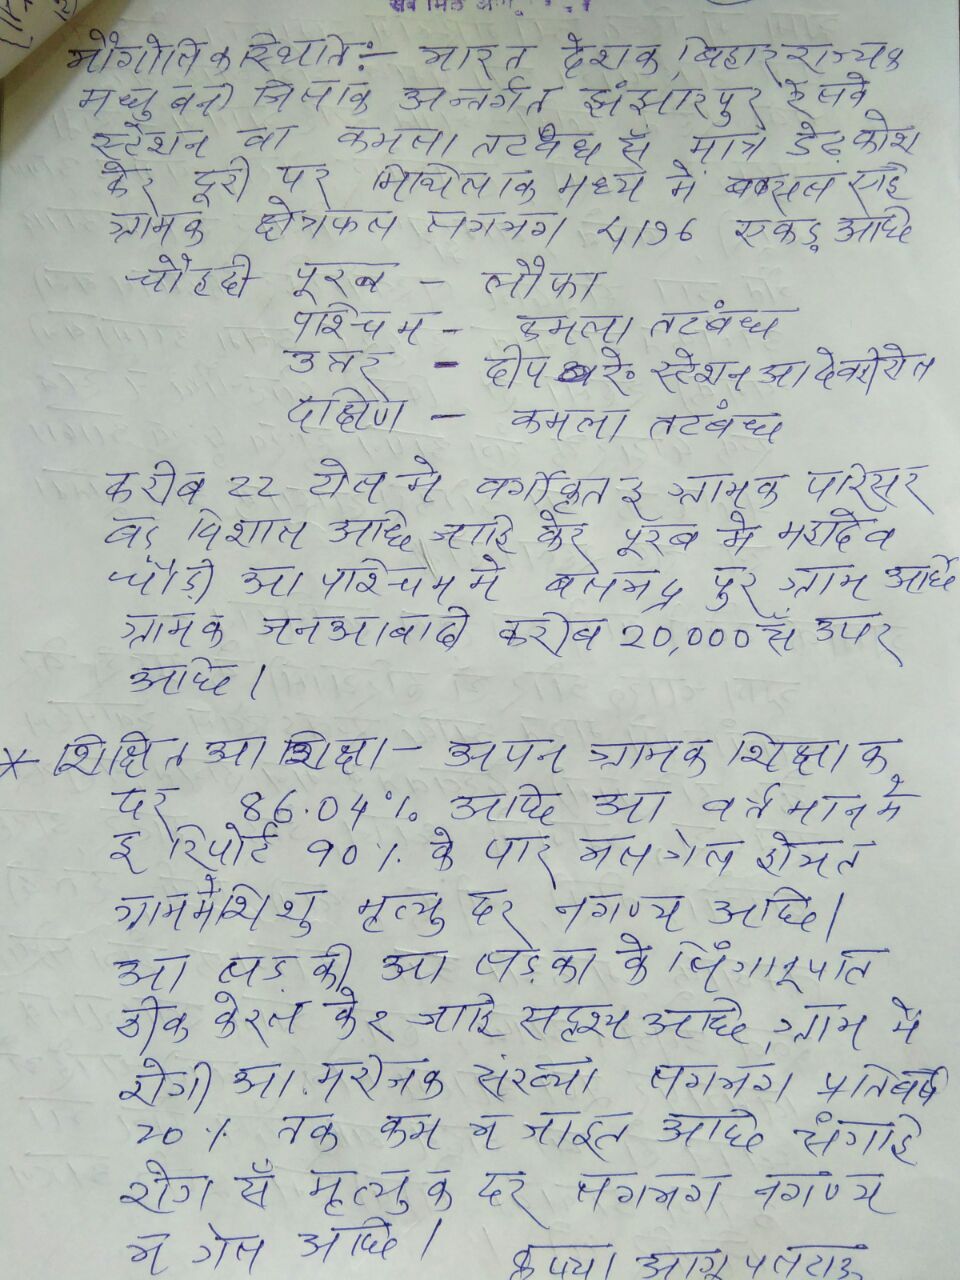 भौगोलिक स्थिति:- भारत देशक बिहार राज्यक
मधुबनी जिलाक अन्तर्गत झंझारपुर रेलवे
स्टेशन वा कमला तटबंध सँ मात्र डेढ़ कोश
केर दूरी पर मिथिलाक मध्य में बसल एहि
ग्रामक क्षेत्रफल लगभग 4196 एकड़ अछि
चौहदी पूरब - लौफा
पश्चिम - कमला तटबंध
उत्तर - दीप रे॰ स्टेशन आ
दक्षिण - कमला तटबंध
करीब 22 टोल मे वर्गीकृत इ ग्रामक परिसर
बड़ विशाल अछि जाहि केर पूरब मे महादेव
आ पश्चिम मे बलभद्र पुर ग्राम अछि
ग्रामक जनआबादी करीब 20,000 सँ उपर
अछि।
* शिक्षित आ शिक्षा - अपन ग्रामक शिक्षा क
दर 86.04% अछि आ वर्तमान मे
इ रिपोर्ट 90% के पार भल गेल होमत
ग्राममे शिशु मृत्यु दर नगण्य अछि।
आ लड़की आ लड़का के लिंगानूपात
ठीक केरल केर जाहि सदृश्य अछि, ग्राम में
रोगी आ मरीजक संख्या लगभग प्रतिवर्ष
20% तक कम भ जाइत अछि संगहि
रोग सँ मृत्यु क दर लगभग नगण्य
भ गेल अछि।
कृपया आगू पलटाऊ